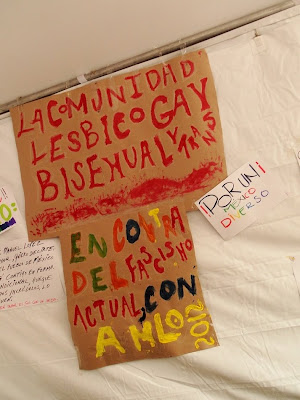 LA COMUNIDAD
LESBICO GAY
BISEXUAL Y TRANS
EN CONTRA
DEL FASCISMO
ACTUAL, CON
AMLO 2012
¡POR UN¡
MÉXICO
DIVERSO